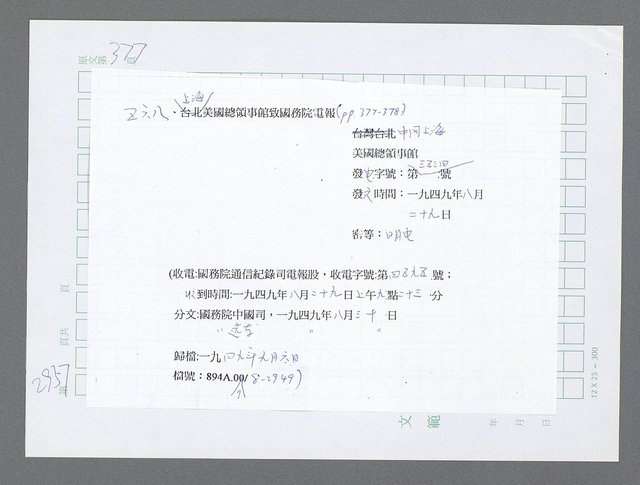 原文第377頁
五六八、台北上海美國總領事館致國務院電報(pp.377-378)
台灣台北中國上海
美國總領事館
發電字號：第三五三四號
發文時間：一九四九年八月
二十九日
密等：明電
(收電:國務院通信紀錄司電報股，收電字號:第四五九五號；
收到時間:一九四九年八月二十九日上午九點二十三分
分文:國務院中國司，一九四九年八月三十日
〃 〃 〃
歸檔:一九四九年九月六日
檔號：894A.00/8-2949)
頁
頁共
第
2957
12 X 25 = 300
文 範
年 月 日